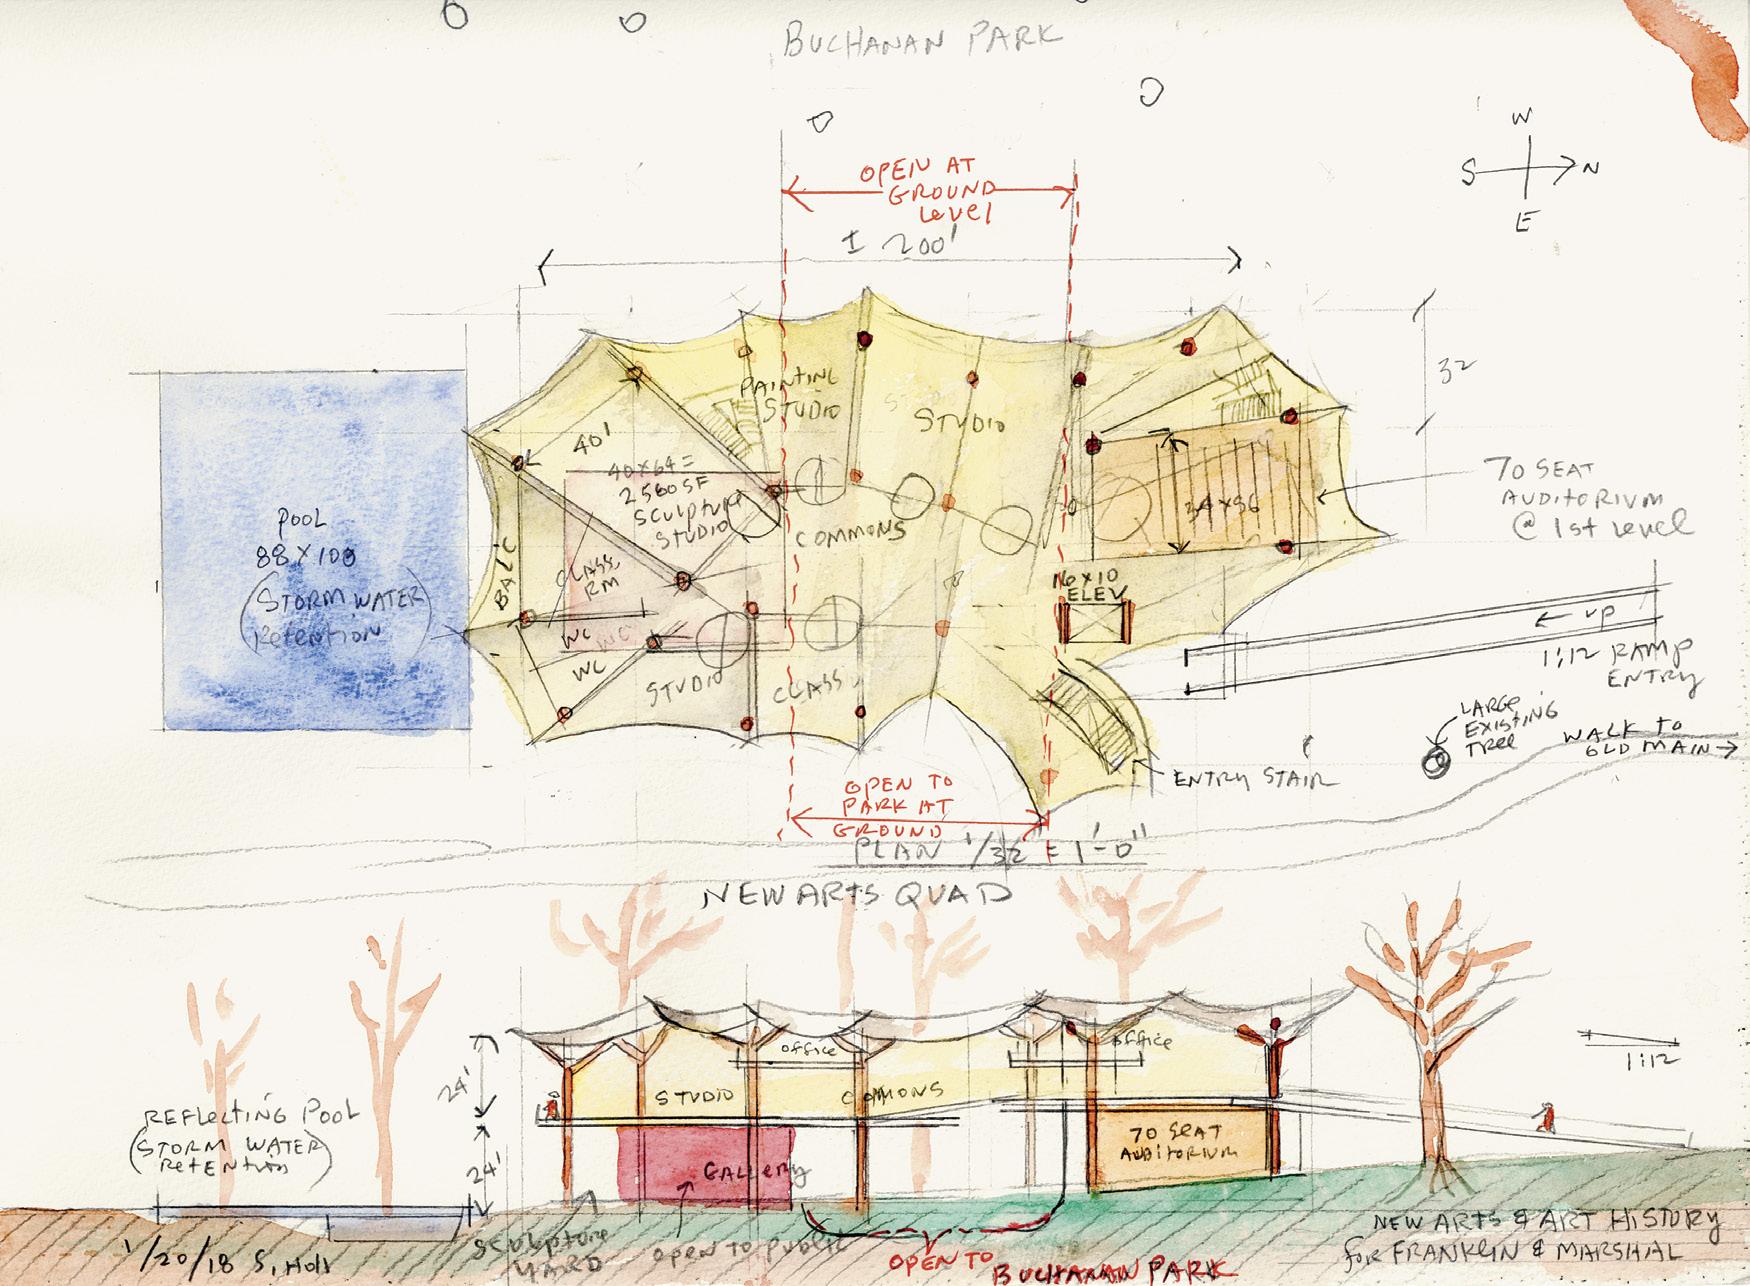 BUCHANAN PARK
W
S N
E
OPEN AT
GROUND
Level
± 200'
32
PAINTING
STUDIO
STUDIO
40'
40X64=
2560SF
SCULPTURE
STUDIO
COMMONS
34X56
70 SEAT
AUDITORIUM
@ 1st Level
POOL
88X100
(STORM WATER
Retention)
BALC
CLASS
RM
WC
WC
WC
STUDIO
CLASS
16X10
ELEV
← UP
1:12 RAMP
ENTRY
LARGE
EXISTING
TREE
WALK TO
OLD MAIN →
ENTRY STAIR
OPEN TO
PARK AT
GROUND
PLAN 1/32" = 1'-0"
NEW ARTS QUAD
office
office
24'
STUDIO
COMMONS
1:12
REFLECTING POOL
(STORM WATER
Retention)
24'
GALLERY
70 SEAT
AUDITORIUM
SCULPTURE
YARD
OPEN TO PUBLIC
OPEN TO BUCHANAN PARK
1/20/18 S. Holl
NEW ARTS & ART HISTORY
for FRANKLIN & MARSHAL